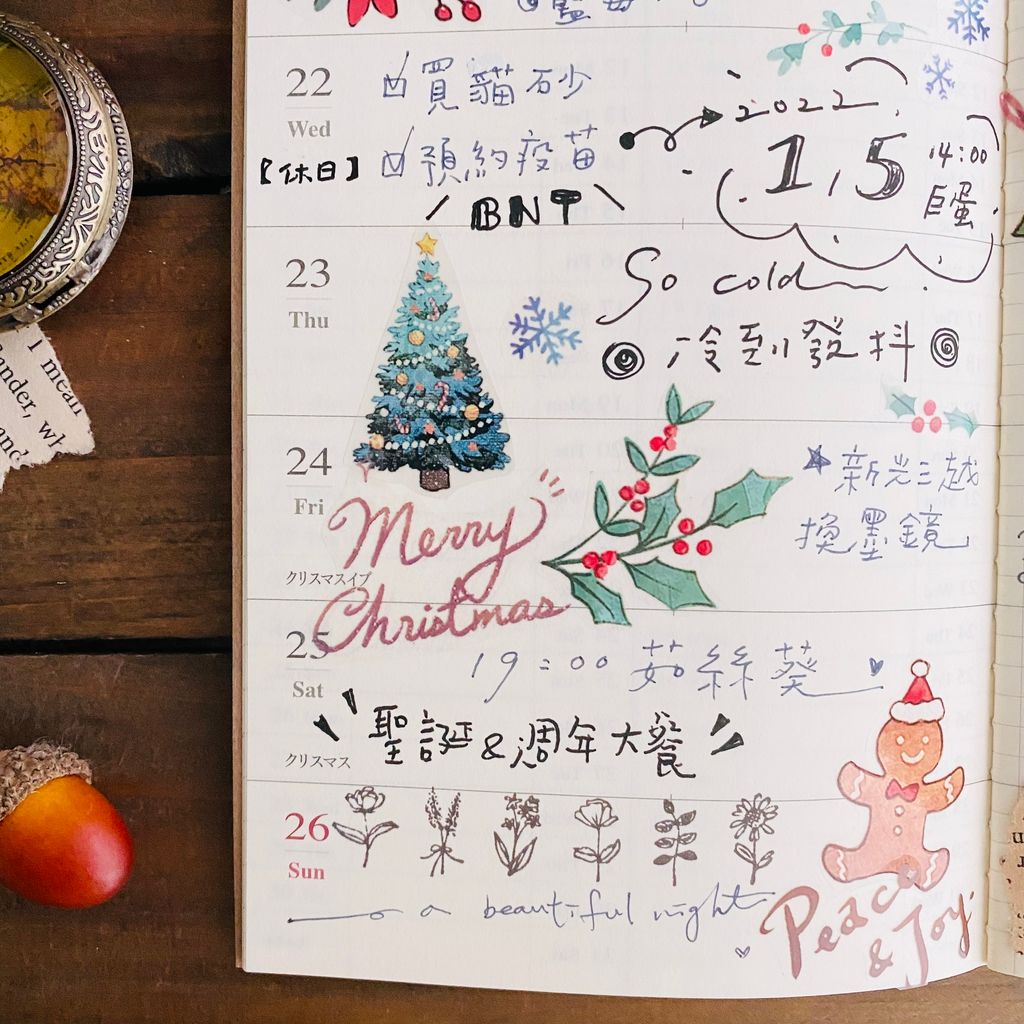 22
Wed
買貓砂
【休日】
預約疫苗
BNT
2022
1,5
14:00
巨蛋
23
Thu
So cold
冷到發抖
24
Fri
クリスマスイブ
新光三越
換墨鏡
Merry
Christmas
25
Sat
クリスマス
19:00 茹絲葵
聖誕&週年大餐
26
Sun
a beautiful night
Peace
& Joy.
I mean
and